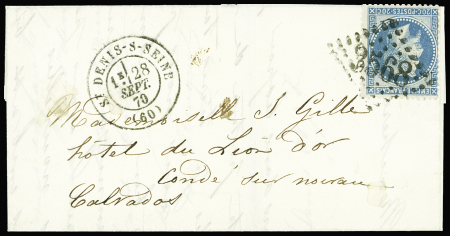 ST DENIS-S-SEINE
1E
28
SEPT.
70
(60)
Mademoiselle S. Gille
hôtel du Lion d'or
Condé sur noireau
Calvados